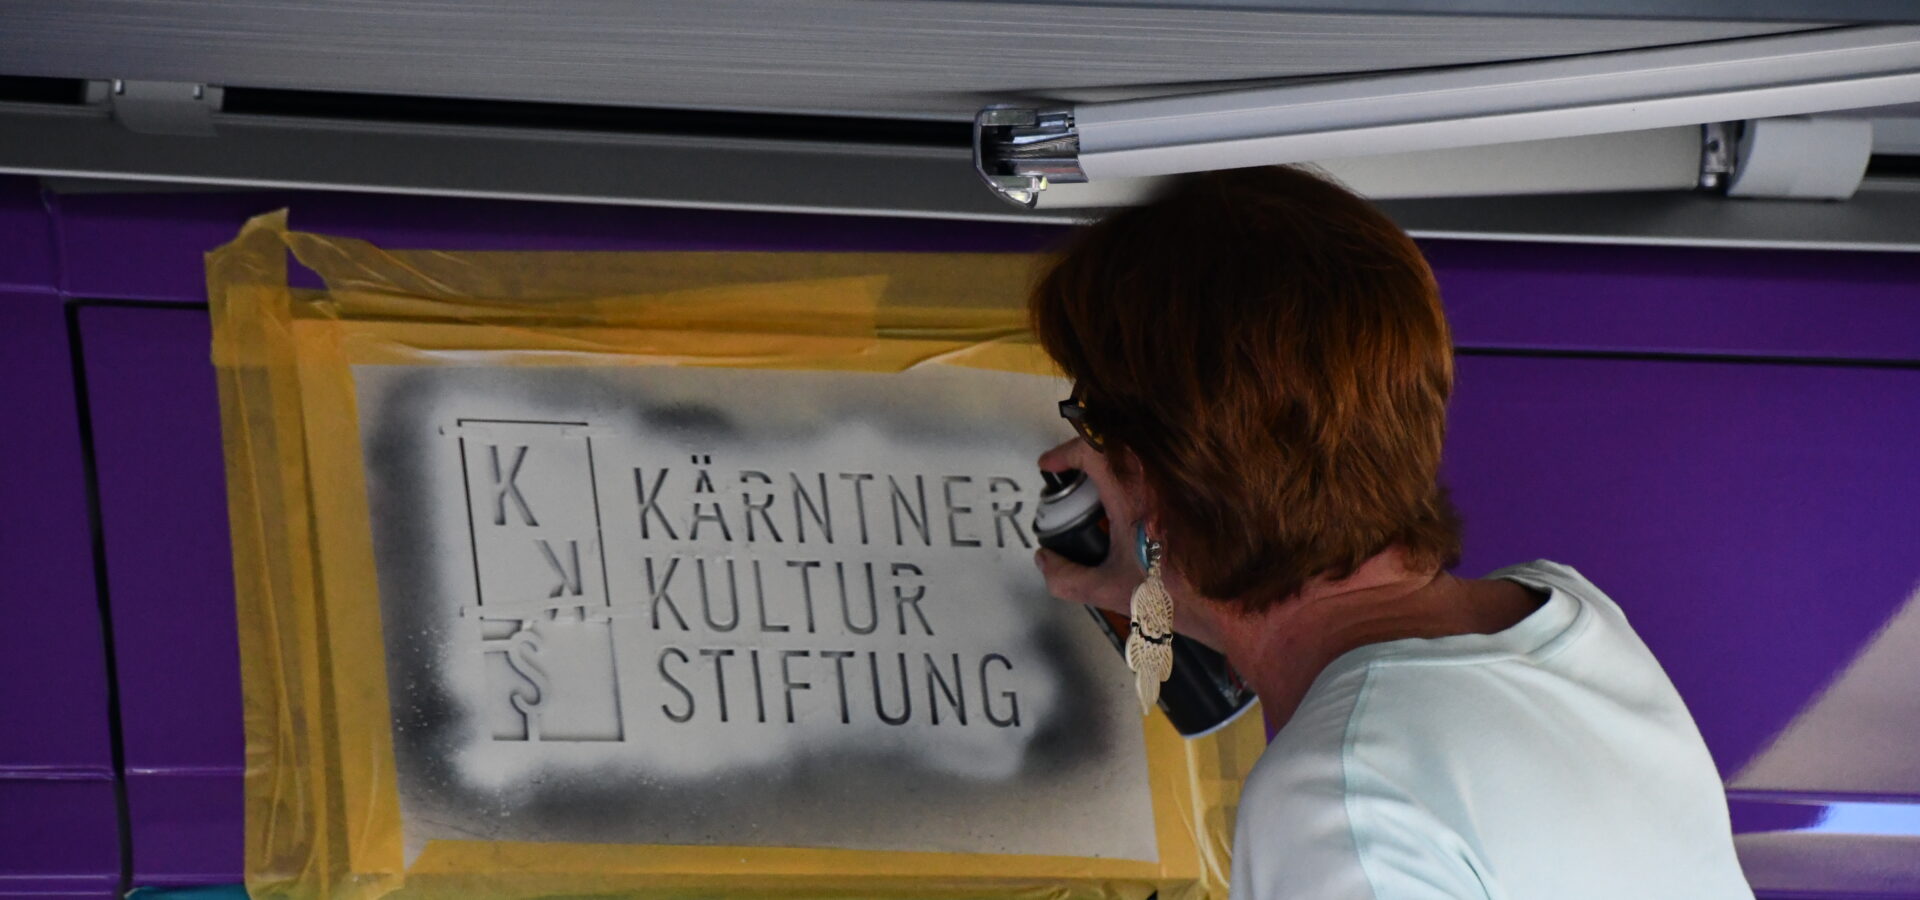 K
K
S
KÄRNTNER
KULTUR
STIFTUNG